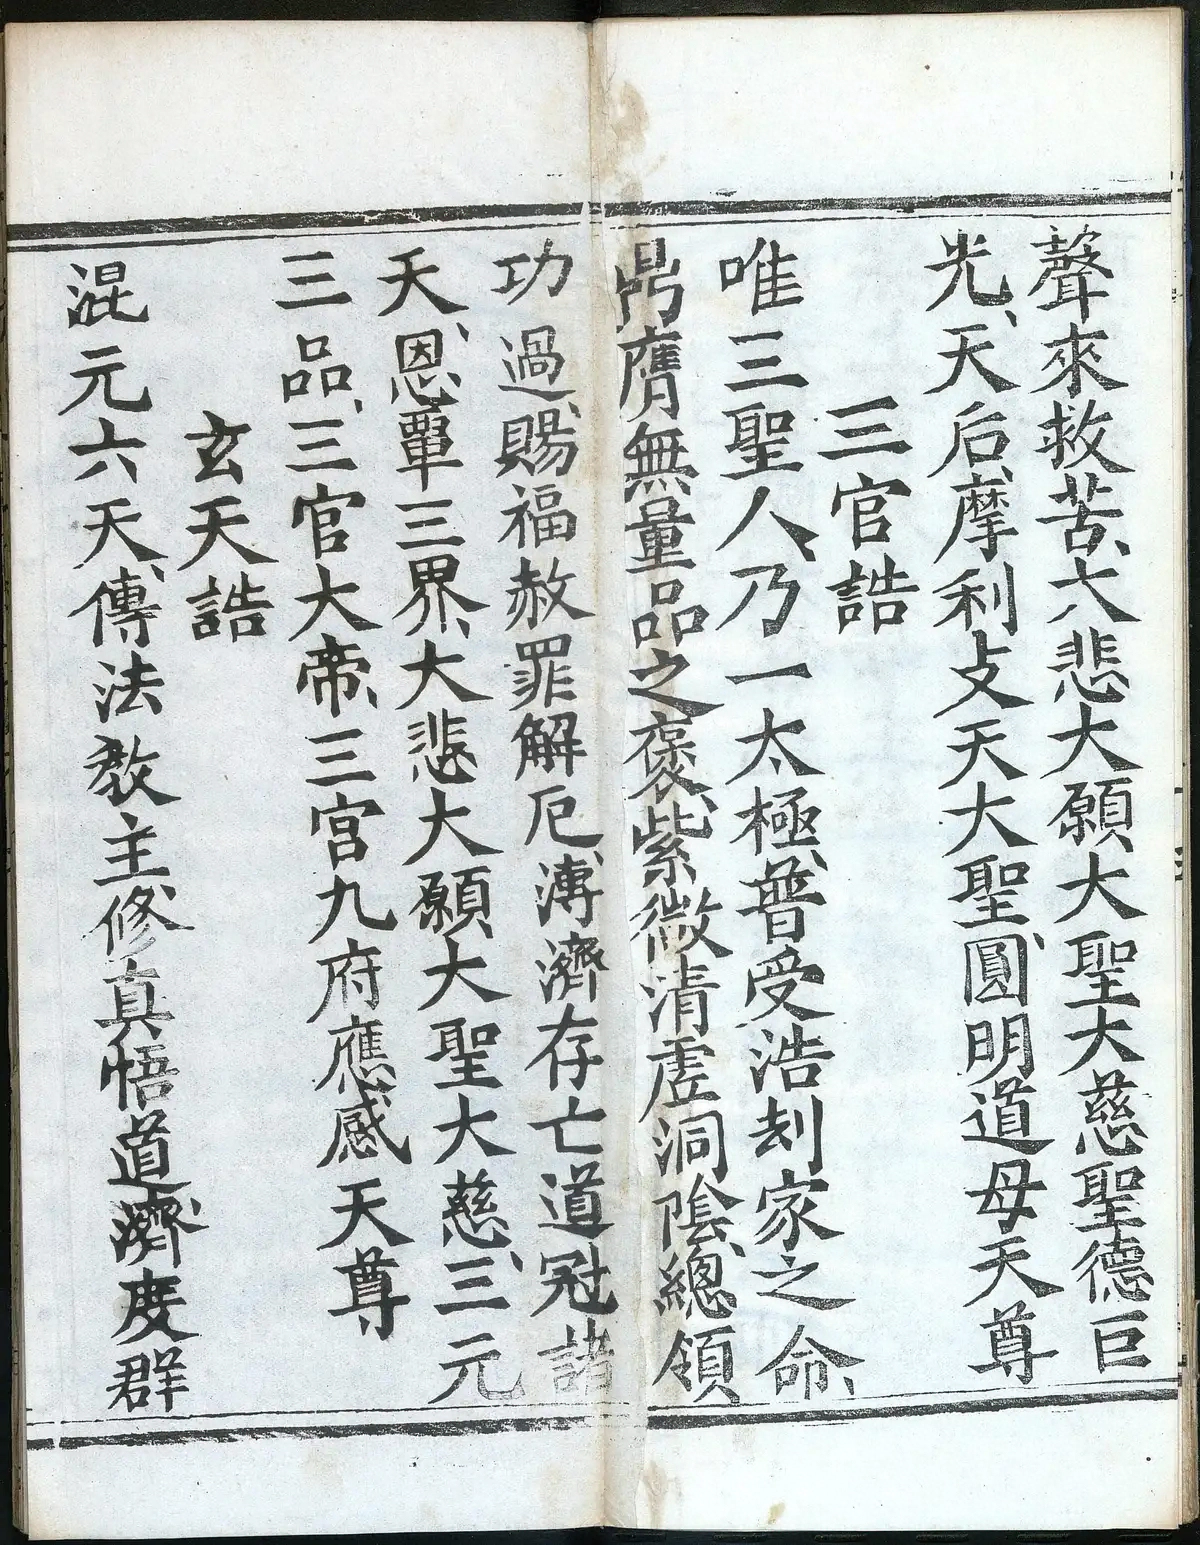 聲來救苦、大悲大願、大聖大慈聖德巨
光、天后、摩利攴天大聖、圓明道母天尊
三官誥
唯三聖人、乃一太極、普受浩刦家之命、
鼎膺無量品之褒、紫微清虛洞陰、總領
功過、賜福赦罪解厄、溥濟存亡道冠諸
天、恩覃三界、大悲大願大聖大慈、三元
三品、三官大帝、三宮九府應感天尊
玄天誥
混元六天、傳法教主、修真悟道、濟度群